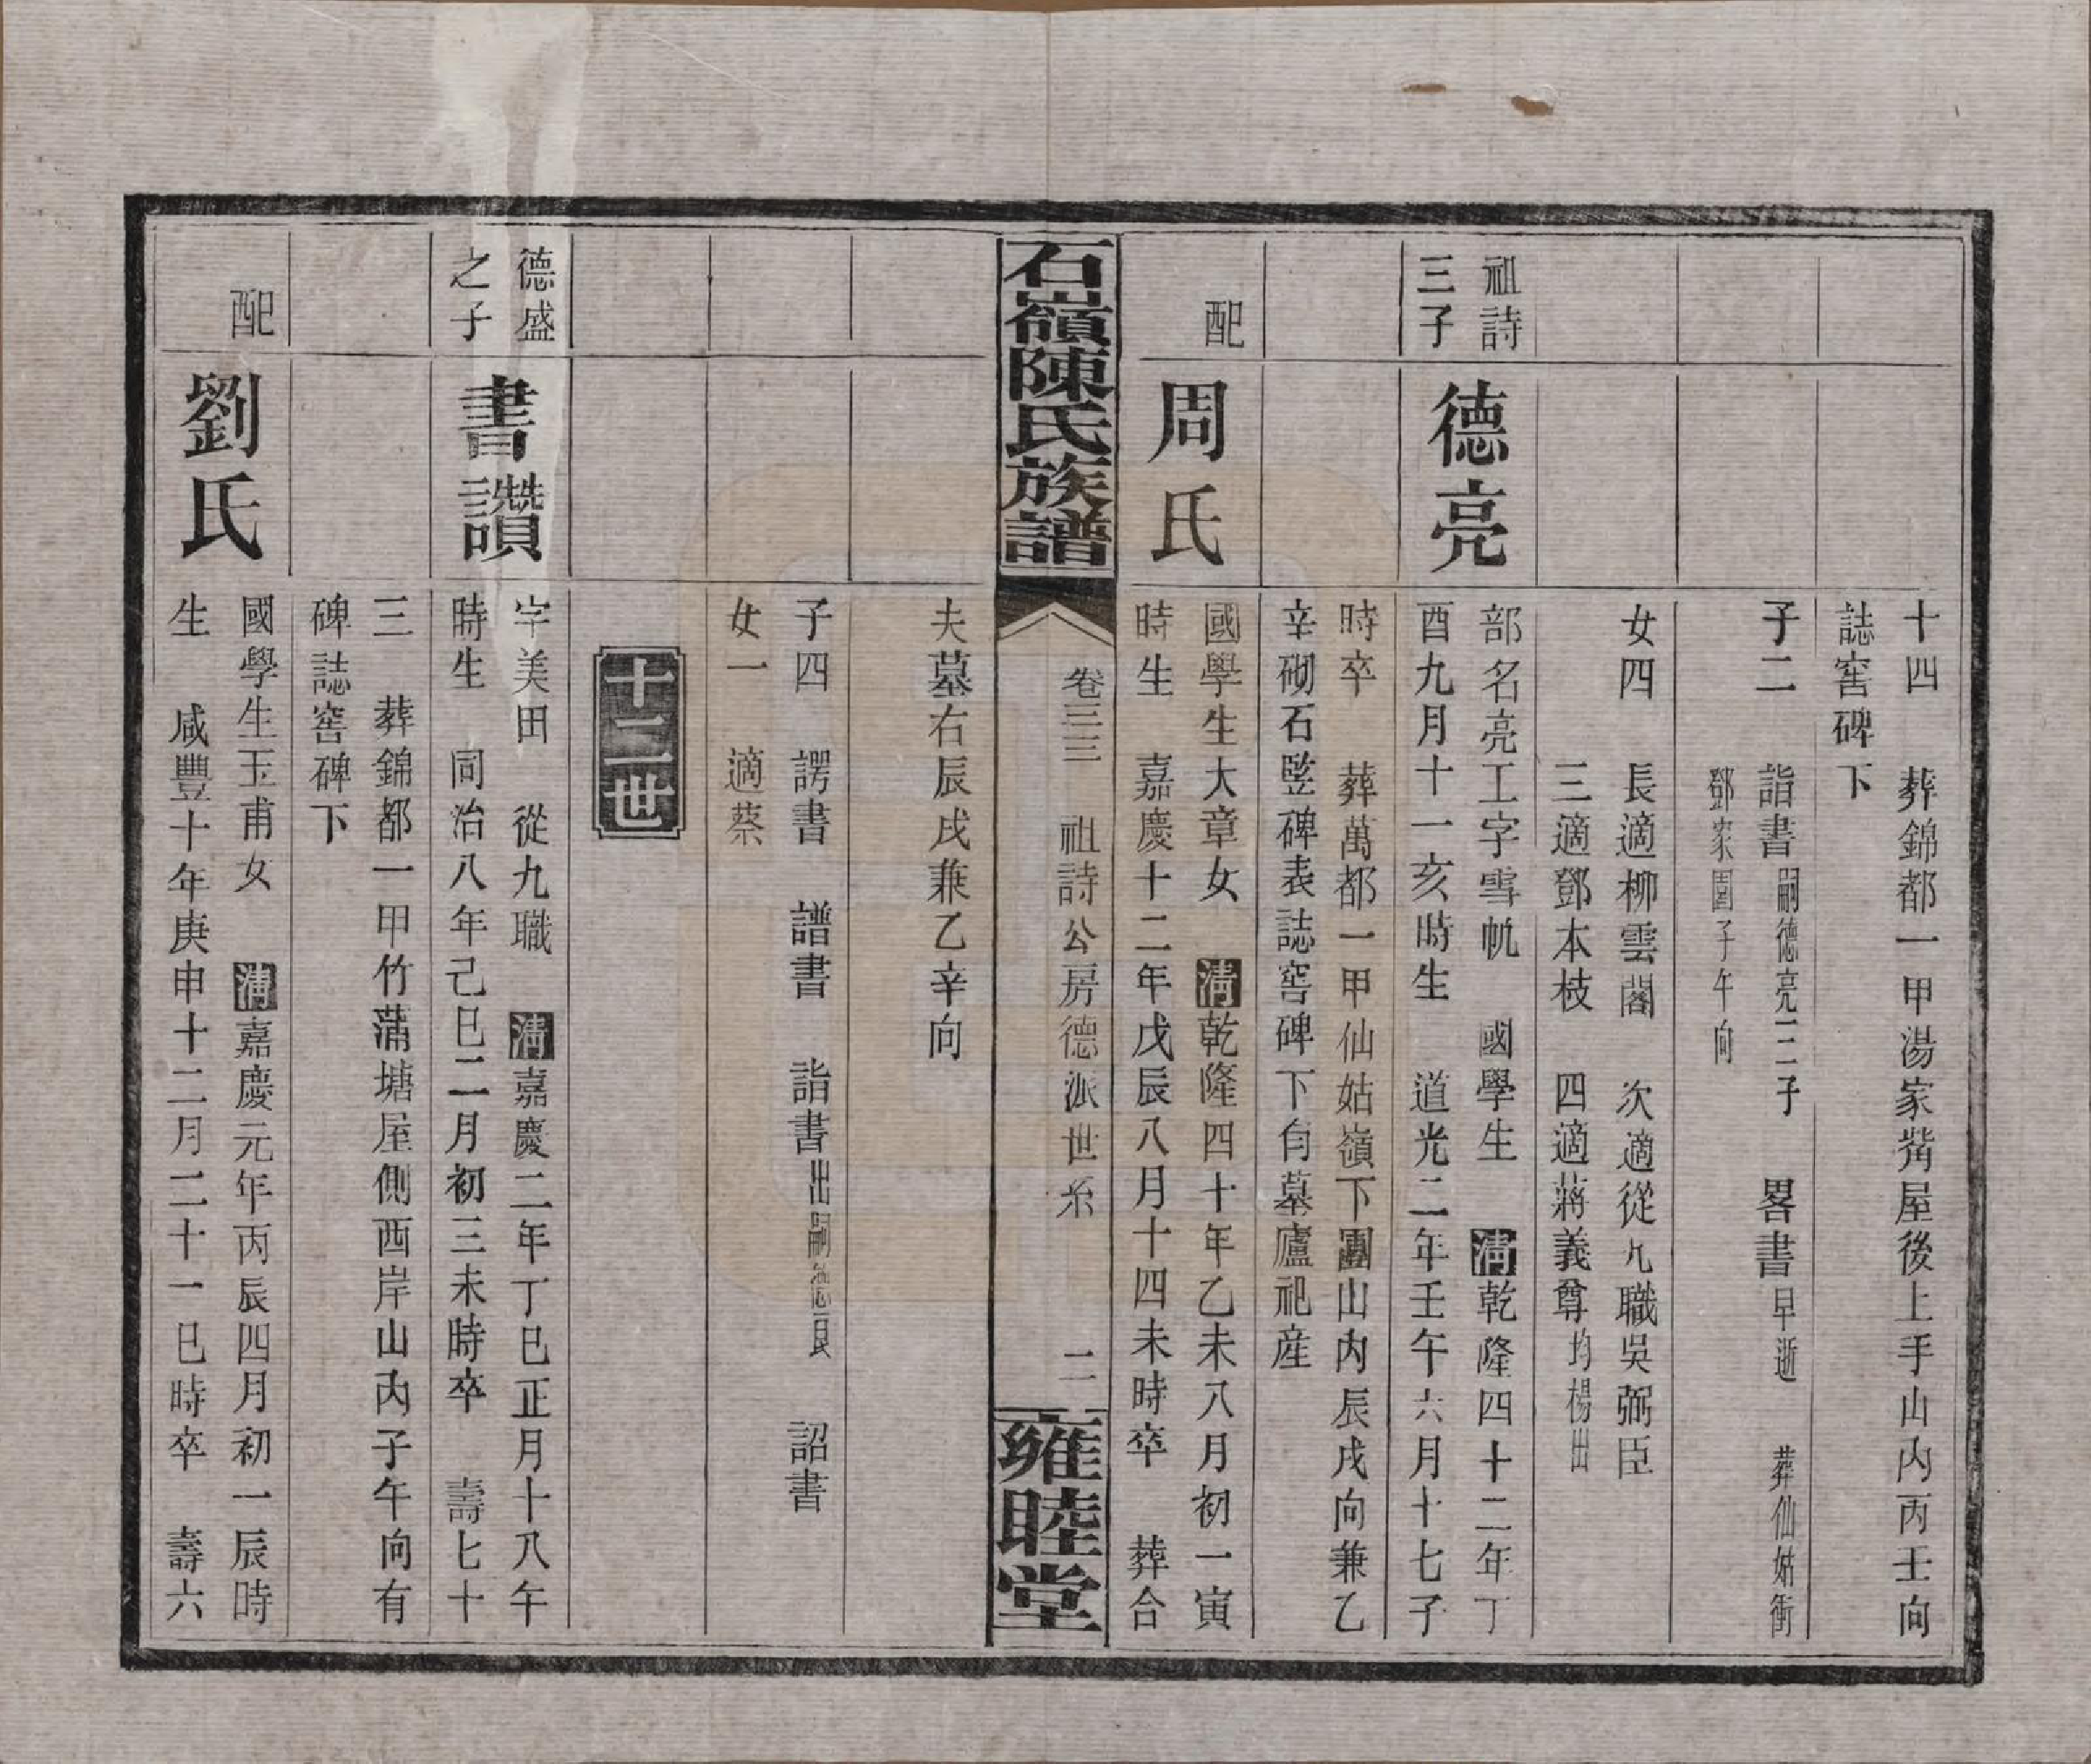 十四　葬錦都一甲湯家嘴屋後上手山內丙壬向
誌窖碑下
子二　詣書嗣德亮二子　畧書早逝　葬仙姑衝
鄧家園子午向
女四　長適柳雲閣　次適從九職吳弼臣
三適鄧本枝　四適蔣義尊均楊出
祖詩
三子
德亮
部名亮工字雪帆　國學生　清乾隆四十二年丁
酉九月十一亥時生　道光二年壬午六月十七子
時卒　葬萬都一甲仙姑嶺下團山內辰戌向兼乙
辛砌石竪碑表誌窖碑下有墓廬祀産
配
周氏
國學生大章女　清乾隆四十年乙未八月初一寅
時生　嘉慶十二年戊辰八月十四未時卒　葬合
石嶺陳氏族譜
卷三三　祖詩公房德派世系　二
雍睦堂
夫墓右辰戌兼乙辛向
子四　諤書　譜書　詣書出嗣德亮　詔書
女一　適蔡
十二世
德盛
之子
書讚
字美田　從九職　清嘉慶二年丁巳正月十八午
時生　同治八年己巳二月初三未時卒　壽七十
三　葬錦都一甲竹蒲塘屋側西岸山內子午向有
碑誌窖碑下
配
劉氏
國學生玉甫女　清嘉慶元年丙辰四月初一辰時
生　咸豐十年庚申十二月二十一巳時卒　壽六